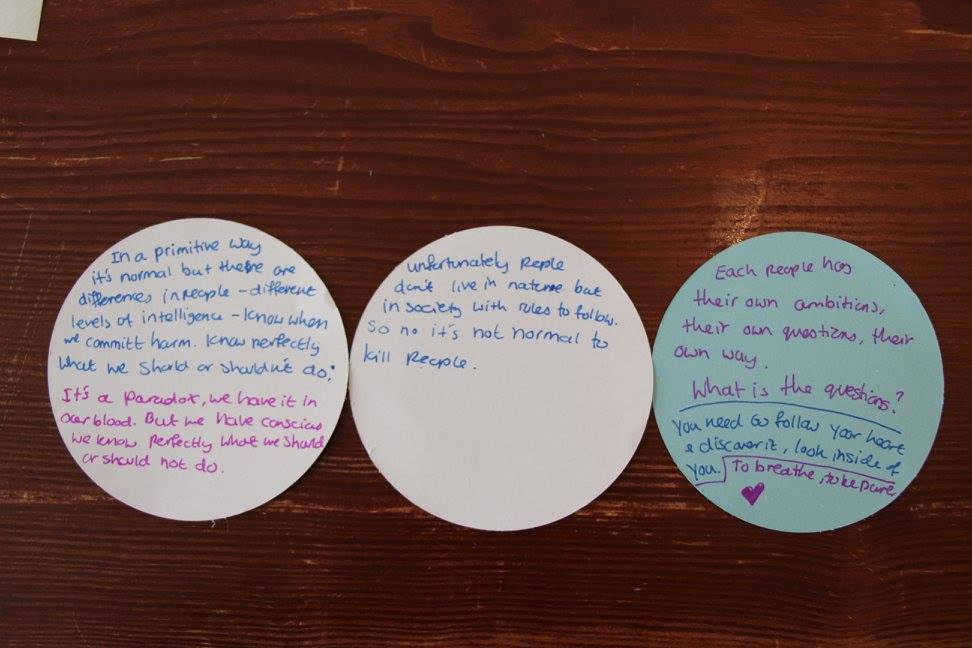 In a primitive way
it's normal but there are
differences in people - different
levels of intelligence - know when
we committ harm. Know perfectly
what we should or shouldn't do.
It's a paradox, we have it in
our blood. But we have conscious
we know perfectly what we should
or should not do.
unfortunately people
don't live in nature but
in society with rules to follow.
So no it's not normal to
kill people.
Each people has
their own ambitions,
their own questions, their
own way.
What is the questions?
You need to follow your heart
& discover it, look inside of
you. To breathe, to be pure